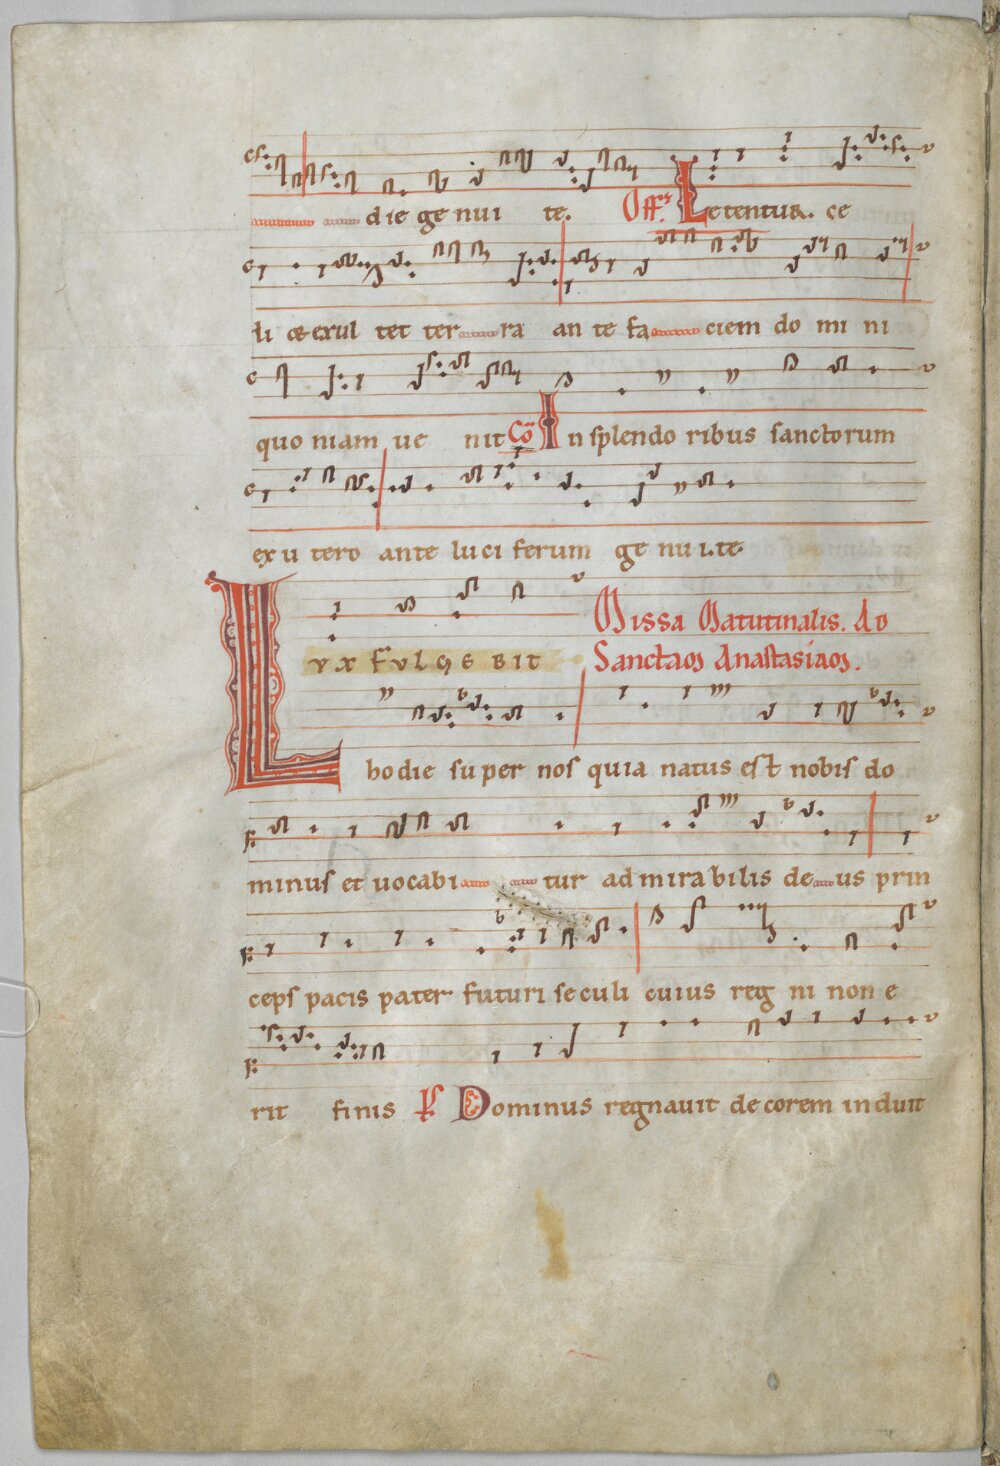 die ge nui te. Off. Letentur. ce
li & exul tet ter ra an te fa ciem do mi ni
quo niam ue nit Cō In splendo ribus sanctorum
ex u tero ante luci ferum ge nu i. te.
Missa Matutinalis. Ad
LVX FVLGEBIT Sanctam Anastasiam.
hodie su per nos quia natus est nobis do
minus et uocabi tur admirabilis de us prin
ceps pacis pater futuri seculi cuius reg ni non e
rit finis Ps Dominus regnauit decorem induit